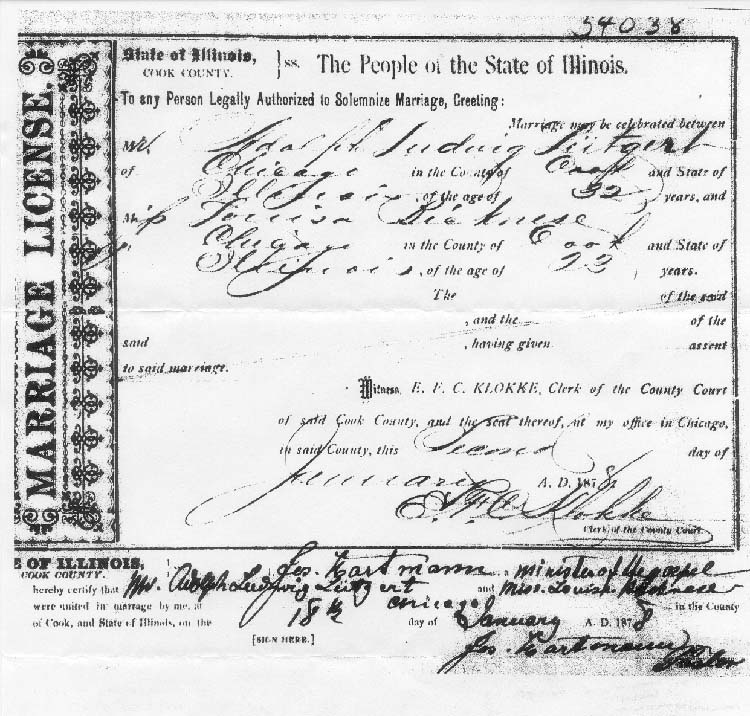 54038
MARRIAGE LICENSE.
State of Illinois,
COOK COUNTY.
} ss. The People of the State of Illinois.
To any Person Legally Authorized to Solemnize Marriage, Greeting:
Marriage may be celebrated between
Mr. Adolph Ludwig Lutgert
of Chicago in the County of Cook and State of
Illinois, of the age of 32 years, and
Miss Louisa Bicknese
of Chicago in the County of Cook and State of
Illinois, of the age of 22 years.
The of the said
, and the of the
said , having given assent
to said marriage.
Witness, E. F. C. KLOKKE, Clerk of the County Court
of said Cook County, and the seal thereof, at my office in Chicago,
in said County, this Second day of
January A. D. 1878
E. F. C. Klokke
Clerk of the County Court
E OF ILLINOIS,
COOK COUNTY. Jos. Hartmann a minister of the gospel
hereby certify that Mr. Adolph Ludwig Lutgert and Miss. Louise Bicknese
were united in marriage by me, at Chicago in the County
of Cook, and State of Illinois, on the 18th day of January A. D. 1878
[SIGN HERE.] Jos. Hartmann
Pastor